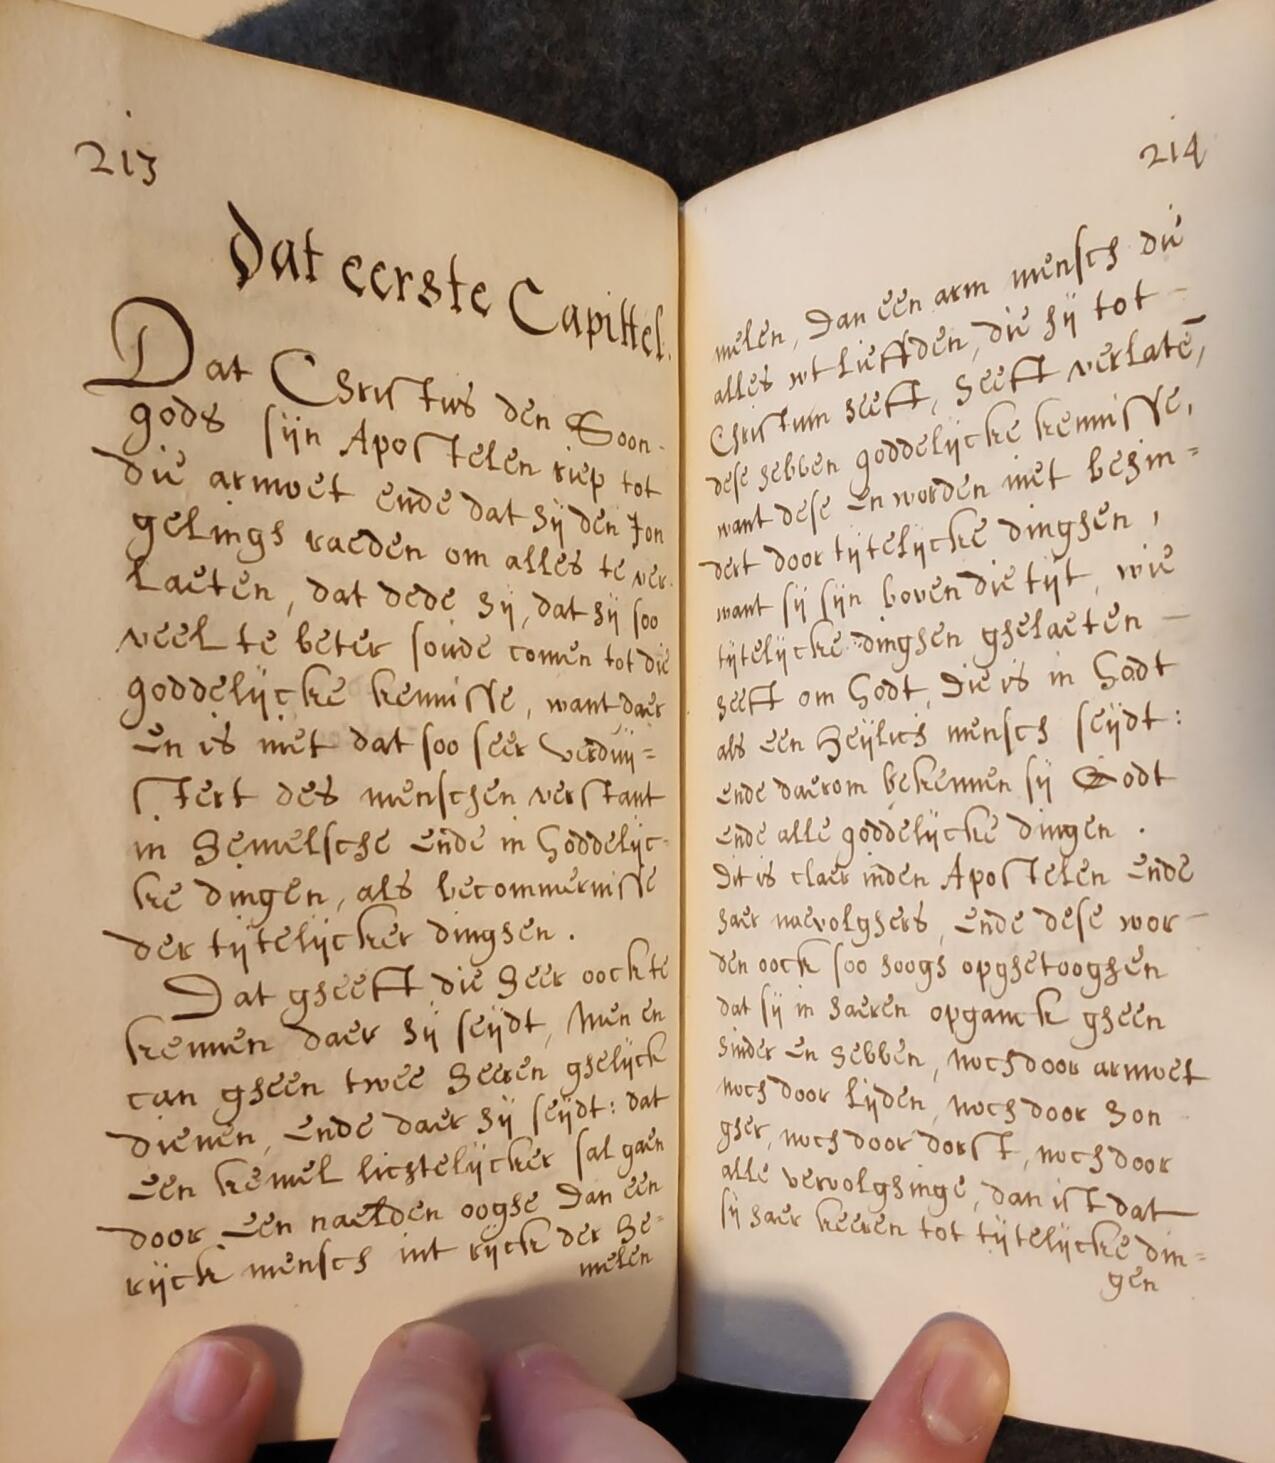 213
Dat eerste Capittel.
Dat Christus den Soon
gods sijn Apostelen riep tot
die armoet ende dat hij den Jon
gelingh raeden om alles te ver-
laeten, dat dede hij, dat hij soo
veel te beter soude comen tot die
goddelijcke kennisse, want daer
en is niet dat soo seer verduij=
stert des menschen verstant
in hemelsche ende in Goddelijc-
ke dingen, als becommernisse
der tijtelijcker dinghen.
Dat gheeft die heer oock te
kennen daer hij seijdt, Men en
can gheen twee heeren ghelijck
dienen, ende daer hij seijdt: dat
een kemel lichtelijcker sal gaen
door een naelden ooghe dan een
rijck mensch int rijck der he=
melen
214
melen, dan een arm mensch die
alles wt liefden, die hij tot
Christum heeft, heeft verlatē,
dese hebben goddelijcke kennisse,
want dese en worden niet behin=
dert door tijtelijcke dinghen,
want sij sijn boven die tijt, wie
tijtelijcke dinghen ghelaeten
heeft om Godt, Die is in Godt
als een heijlich mensch seijdt:
ende daerom bekennen sij Godt
ende alle goddelijcke dingen.
Dit is claer inden Apostelen ende
haer naevolghers, ende dese wor
den oock soo hoogh opghetooghen
dat sij in haeren opganck gheen
hinder en hebben, noch door armoet
noch door lijden, noch door hon
gher, noch door dorst, noch door
alle vervolghinge, dan ist dat
sij haer keeren tot tijtelijcke din=
gen